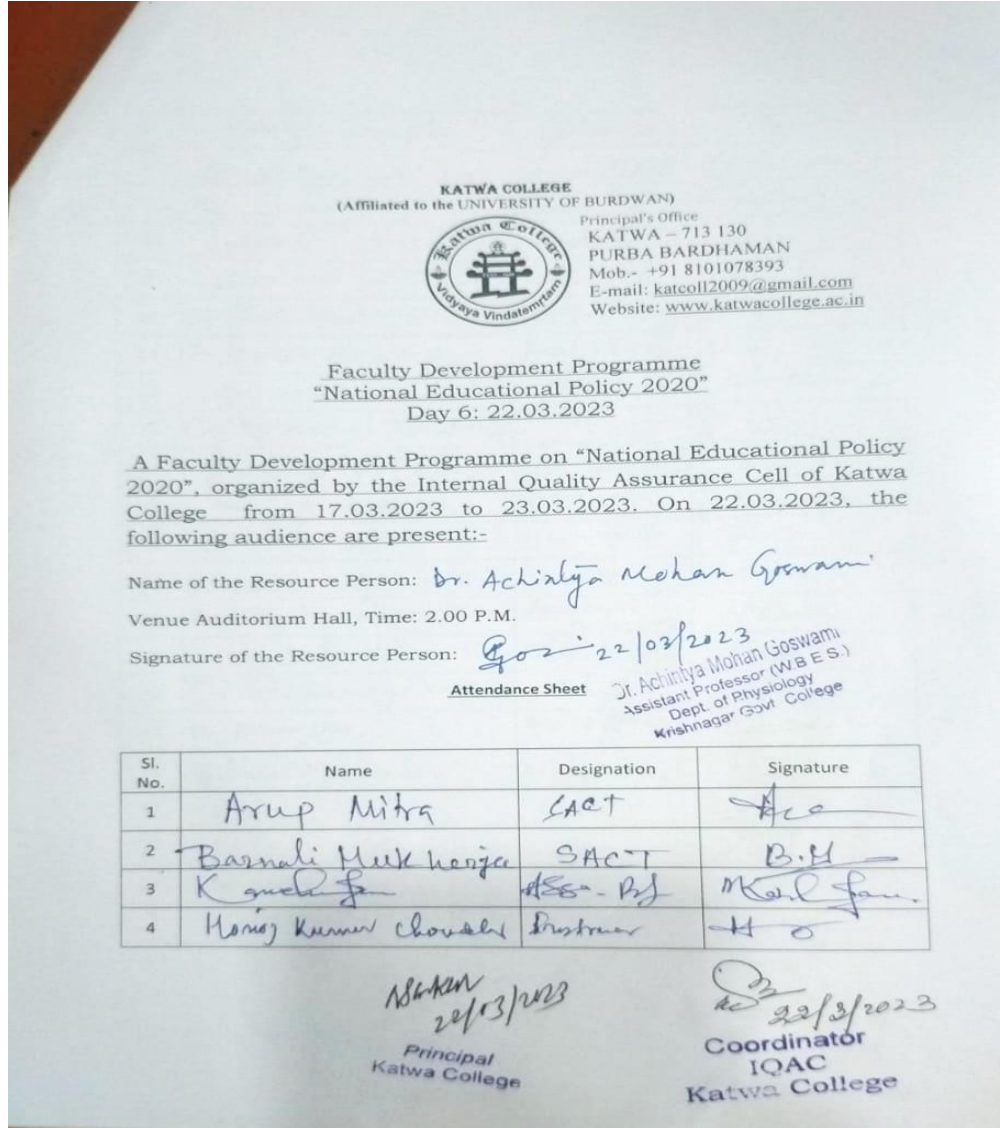 KATWA COLLEGE
(Affiliated to the UNIVERSITY OF BURDWAN)
Katwa College
Vidyaya Vindatemrtam
Principal's Office
KATWA – 713 130
PURBA BARDHAMAN
Mob.- +91 8101078393
E-mail: katcoll2009@gmail.com
Website: www.katwacollege.ac.in
Faculty Development Programme
“National Educational Policy 2020”
Day 6: 22.03.2023
A Faculty Development Programme on “National Educational Policy
2020”, organized by the Internal Quality Assurance Cell of Katwa
College from 17.03.2023 to 23.03.2023. On 22.03.2023, the
following audience are present:-
Name of the Resource Person: Dr. Achintya Mohan Goswami
Venue Auditorium Hall, Time: 2.00 P.M.
Signature of the Resource Person: 22/03/2023
Dr. Achintya Mohan Goswami
Assistant Professor (W.B E S.)
Dept. of Physiology
Krishnagar Govt College
Attendance Sheet
Sl. No. Name Designation Signature
1 Arup Mitra SACT
2 Barnali Mukherjee SACT B.M
3
4 Kumar
22/03/2023
Principal
Katwa College
22/3/2023
Coordinator
IQAC
Katwa College